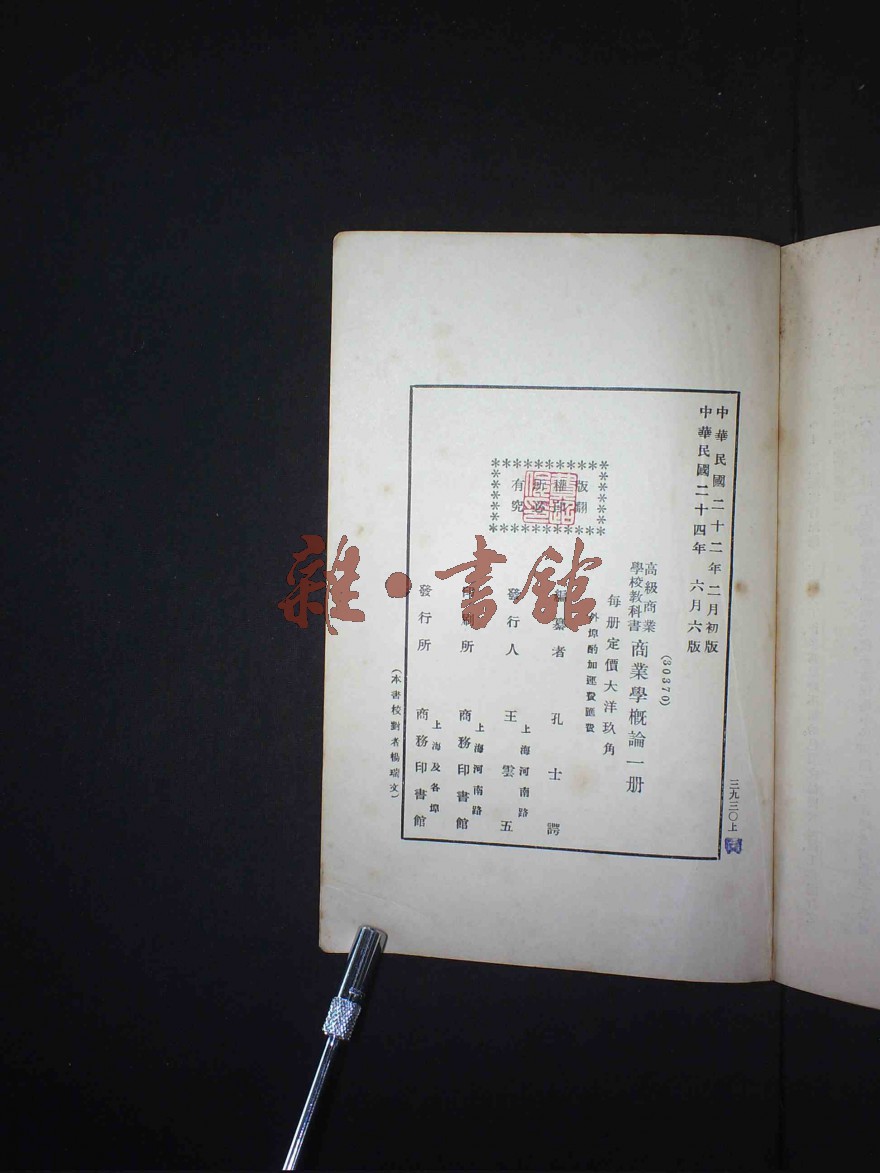 中華民國二十二年二月初版
中華民國二十四年六月六版
三九三〇上
(30370)
高級商業
學校教科書
商業學概論一册
每册定價大洋玖角
外埠酌加運費匯費
版權所有
翻印必究
編纂者 孔士諤
發行人 王雲五
上海河南路
印刷所 商務印書館
上海河南路
發行所 商務印書館
上海及各埠
(本書校對者楊瑞文)
雜·書館